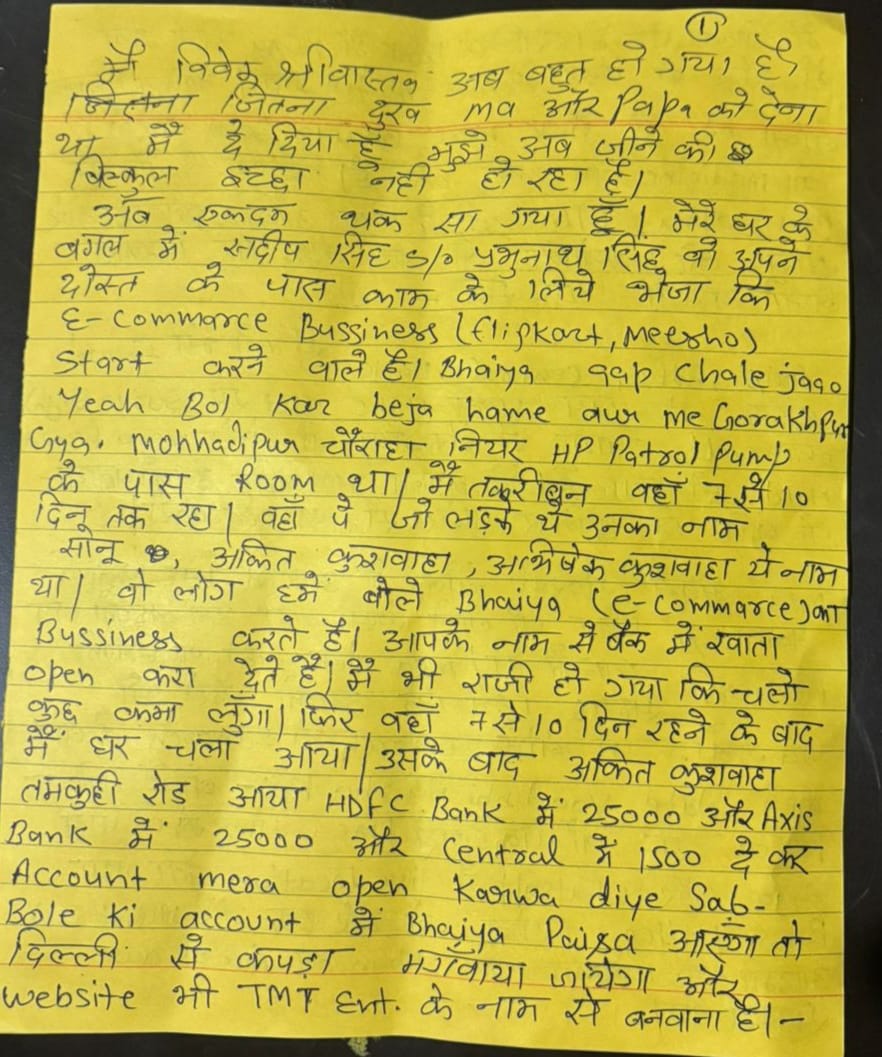 ①
मैं विवेक श्रीवास्तव अब बहुत हो गया है
जितना जितना दुख ma और Papa को देना
था मैं दे दिया हूँ मुझे अब जीने की
बिल्कुल इच्छा नही हो रहा है।
अब एकदम थक सा गया हूँ। मेरे घर के
बगल में सदीप सिंह S/o प्रभुनाथ सिंह वो अपने
दोस्त के पास काम के लिये भेजा कि
E-Commarce Bussiness (flipkart, meesho)
Start करने वाले है। Bhaiya aap chale jaao
Yeah Bol kar beja hame aur me Gorakhpur
Gya. mohhadipur चौराहा नियर HP Patrol Pump
के पास Room था। मैं तकरीबन वहाँ 7 से 10
दिनू तक रहा। वहाँ पे जो लड़के थे उनका नाम
सोनू , अकित कुशवाहा , अभिषेक कुशवाहा ये नाम
था। वो लोग हमें बोले Bhaiya (e-Commarce) का
Bussiness करते है। आपके नाम से बैंक में खाता
open करा देते है। मैं भी राजी हो गया कि चलो
कुछ कमा लुँगा। फिर वहाँ 7 से 10 दिन रहने के बाद
मैं घर चला आया। उसके बाद अकित कुशवाहा
तमकुही रोड आया HDFC Bank में 25000 और Axis
Bank में 25000 और Central में 1500 दे कर
Account mera open Karwa diye Sab-
Bole ki account में Bhaiya Paisa आएगा तो
दिल्ली से कपड़ा मगँवाया जायेगा और
website भी TMT Ent. के नाम से बनवाना है।-